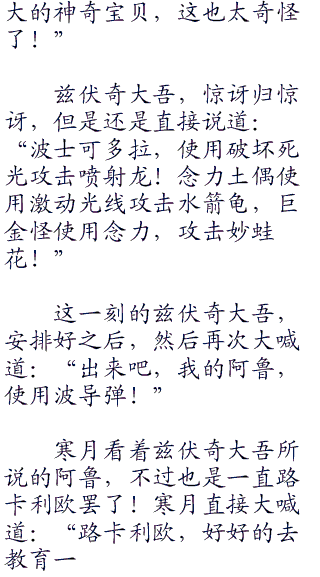 大的神奇宝贝，这也太奇怪
了！”
兹伏奇大吾，惊讶归惊
讶，但是还是直接说道：
“波士可多拉，使用破坏死
光攻击喷射龙！念力土偶使
用激动光线攻击水箭龟，巨
金怪使用念力，攻击妙蛙
花！”
这一刻的兹伏奇大吾，
安排好之后，然后再次大喊
道：“出来吧，我的阿鲁，
使用波导弹！”
寒月看着兹伏奇大吾所
说的阿鲁，不过也是一直路
卡利欧罢了！寒月直接大喊
道：“路卡利欧，好好的去
教育一